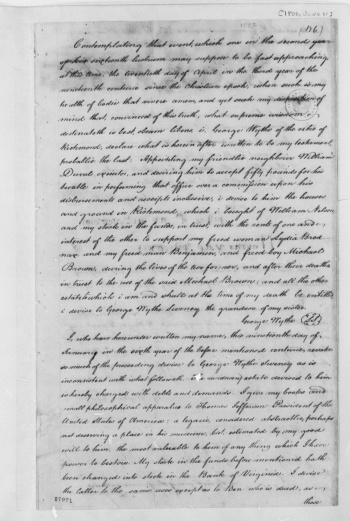 Contemplating that event, which one in the second year
of his sixteenth lustrum may suppose to be fast approaching
at this time, the twentieth day of April in the third year of the
nineteenth centurie since the Christian epoch, when such is my
health of bodie that vivere amem and yet such my disposition of
mind that, convinced of this truth, what supreme wisdom
destinateth is best, obeam libens, i, George Wythe of the citie of
Richmond, declare what is herein after written to be my testament,
probablie the last: Appointing my friendlie neighbour William
Duval executor, and desiring him to accept fifty pounds for his
trouble in performing that office over a commission upon his
disbursements and receipts inclusive, i devise to him the houses
and ground in Richmond, which i bought of William Nelson,
and my stock in the funds, in trust, with the rent of one and
interest of the other to support my freed woman Lydia Broad
nax, and my freed man Benjamin, and freed boy Michael
Brown, during the lives of the two former, and after their deaths
in trust to the use of the said Michael Brown; and all the other
estate which i am and shall at the time of my death be entitled
i devise to George Wythe Sweney the grandson of my sister.
George Wythe
I, who have hereunder written my name, this nineteenth day of
January in the sixth year of the before mentioned centurie, revoke
so much of the preceding devise to George Wythe Sweney as is
inconsistent with what followeth. The residuary estate devised to him
is hereby charged with debts and demands. I give my books and
small philosophical apparatus to Thomas Jefferson President of the
United States of America: a legacie, considered abstractlie, perhaps
not deserving a place in his museum, but estimated by my good
will to him, the most valuable to him of any thing which I have
power to bestow. My stock in the funds before mentioned hath
been changed into stock in the Bank of Virginia. I devise
the latter to the same uses except as to Ben who is dead, as
those